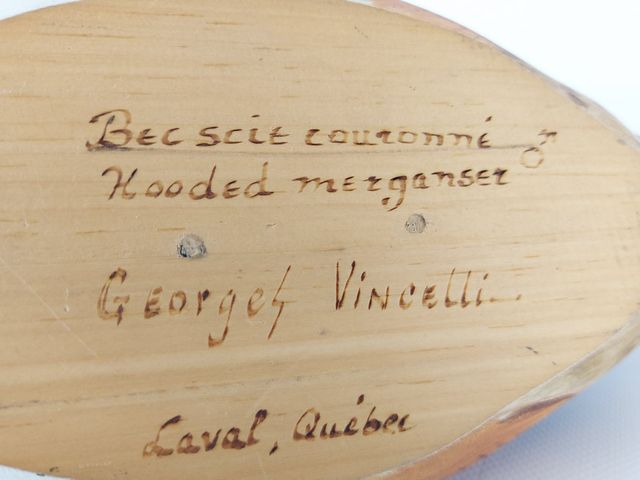 Bec scie couronné
Hooded merganser ♂
Georges Vincelli
Laval, Québec